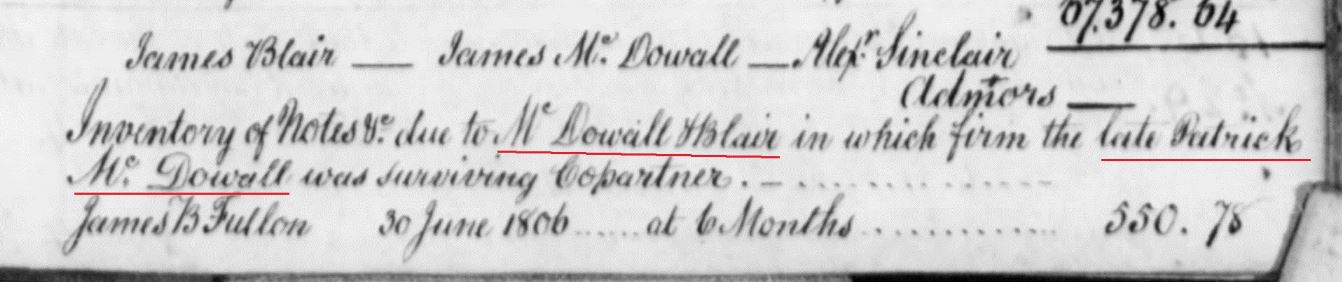 67.378. 64
James Blair — James Mc. Dowall — Alexr. Sinclair
Admors —
Inventory of Notes &c. due to Mc Dowall & Blair in which firm the late Patrick
Mc. Dowall was surviving Copartner. – . . . . . . . . . . . . .
James B Fullon 30 June 1806 ...... at 6 Months . . . . . . . . . . . . . 550. 78